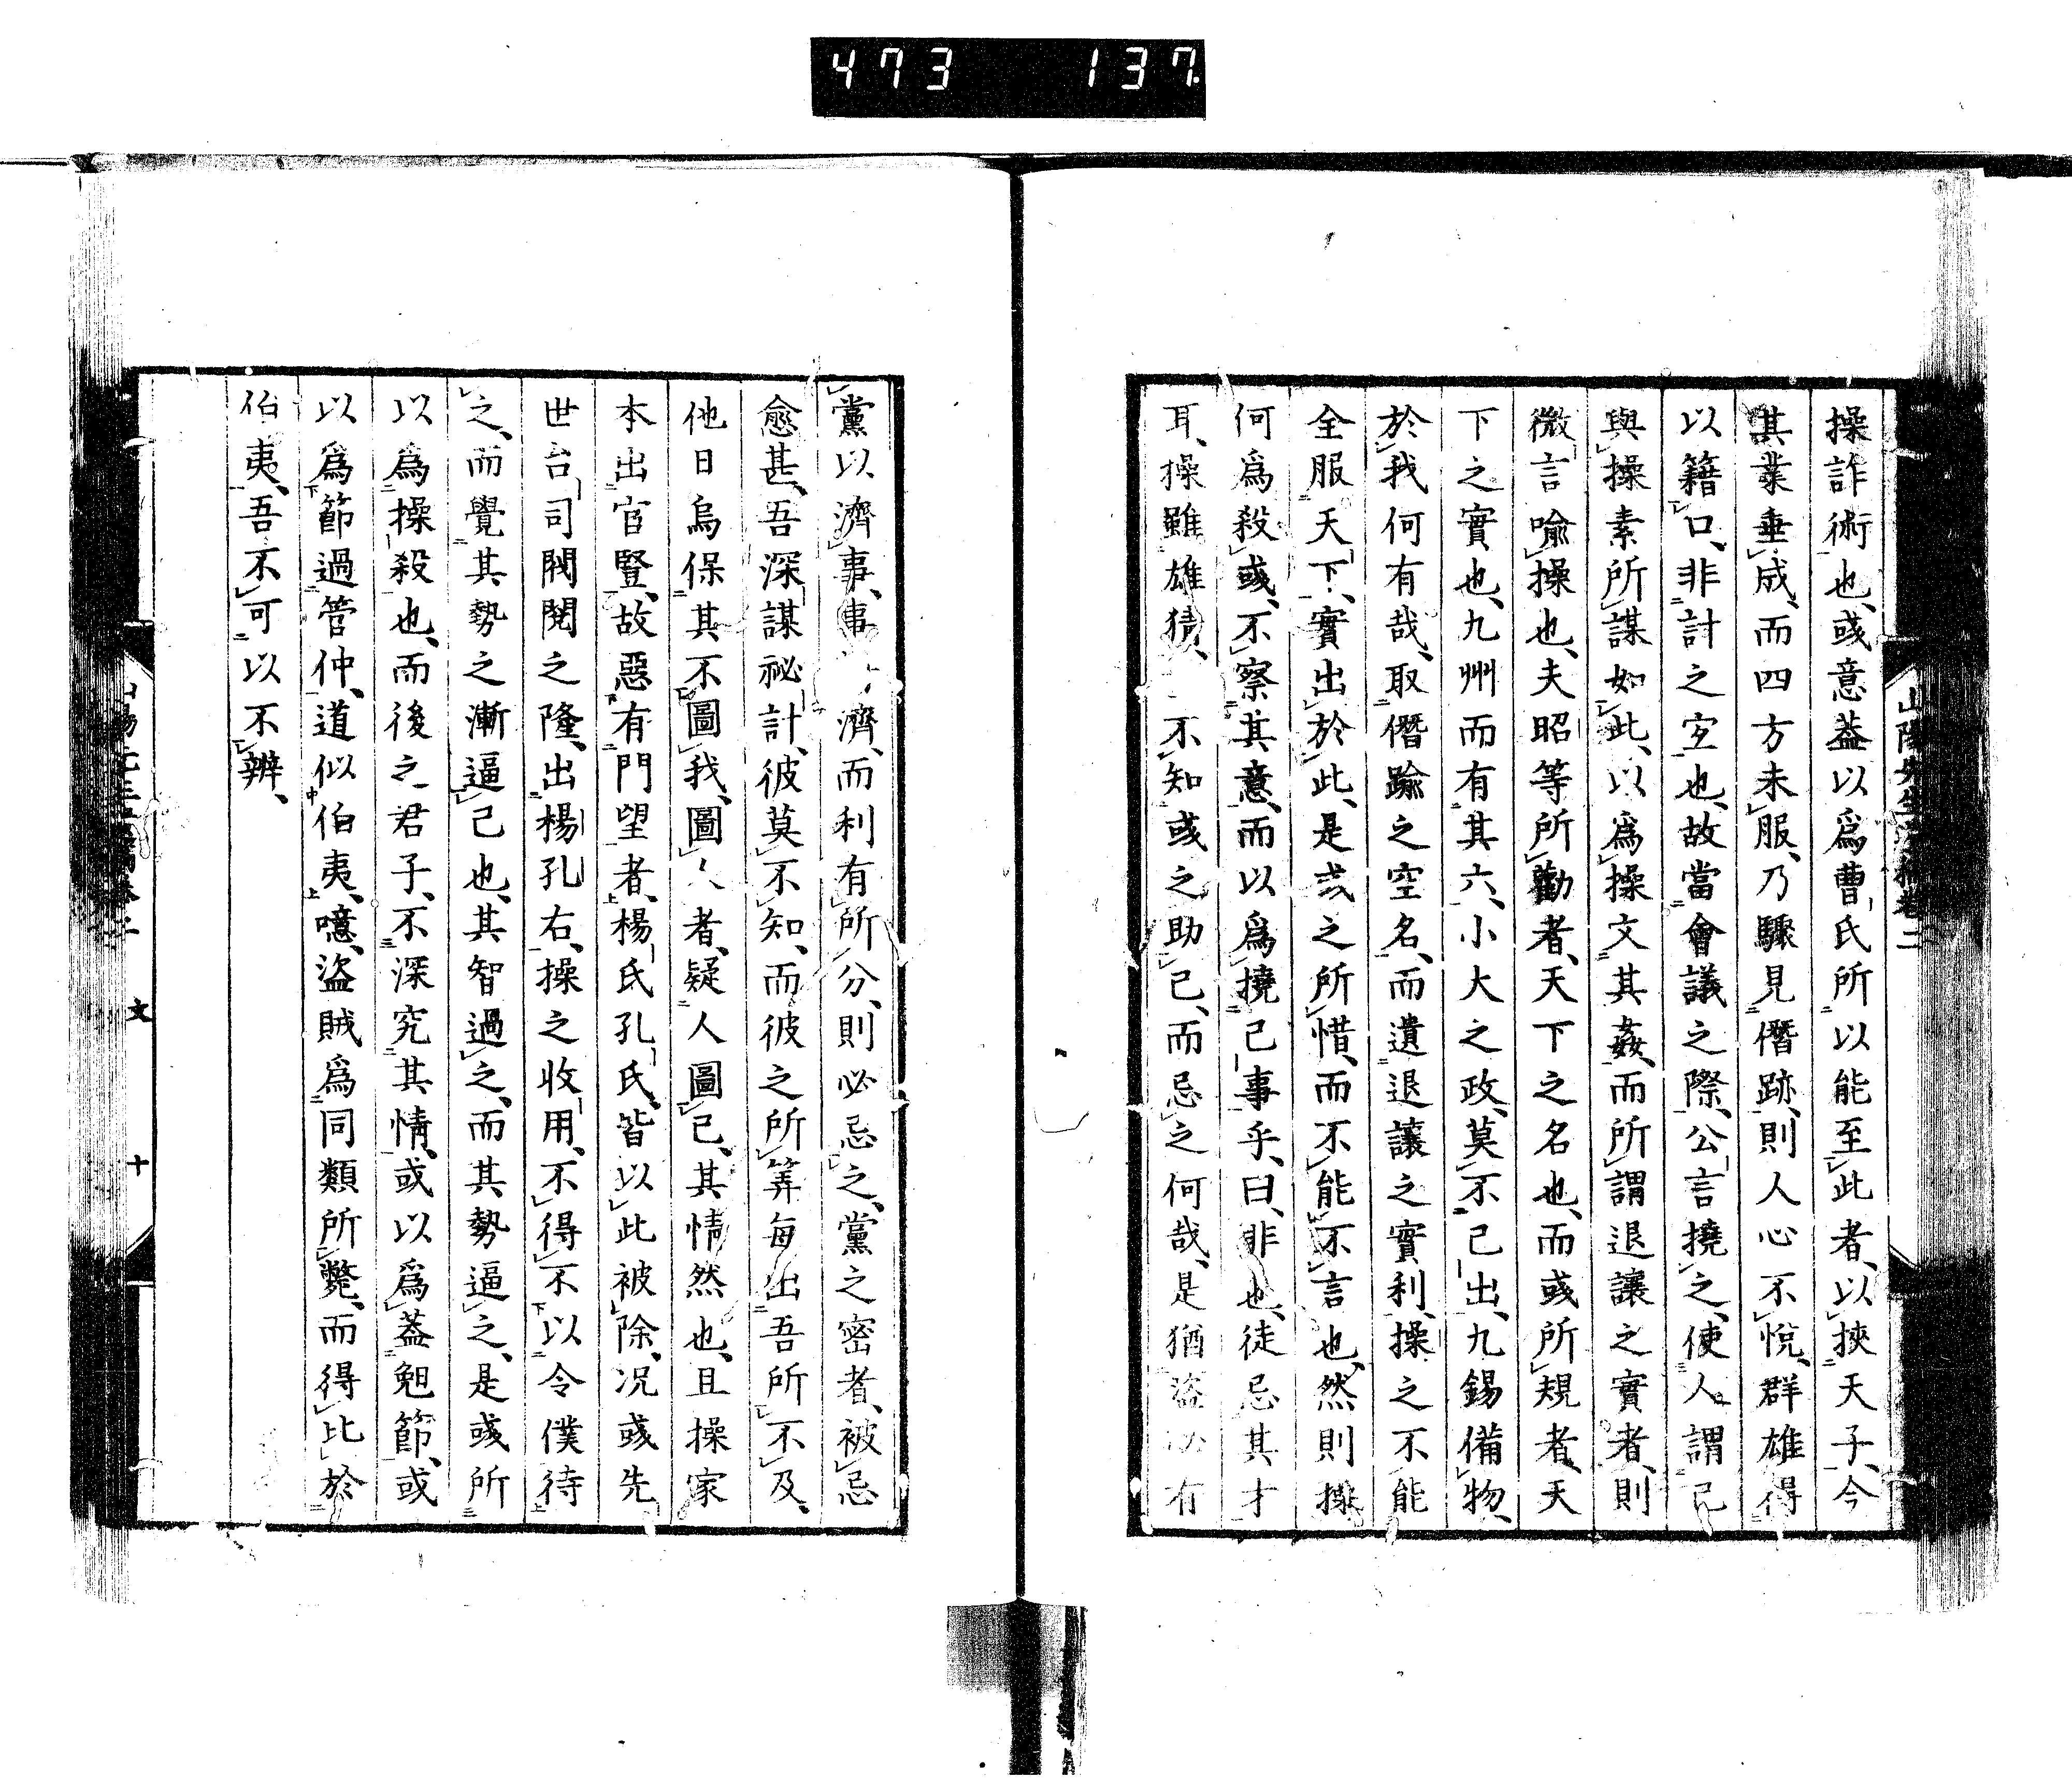 473 137
操詐術也、彧意蓋以爲曹氏所以能至此者、以挾天子、今
其業垂成、而四方未服、乃驟見僭跡、則人心不悅、群雄得
以籍口、非計之宜也、故當會議之際、公言撓之、使人謂己
與操素所謀如此、以爲操文其姦、而所謂退讓之實者、則
微言喩操也、夫昭等所勸者、天下之名也、而彧所規者、天
下之實也、九州而有其六、小大之政、莫不己出、九錫備物、
於我何有哉、取僭踰之空名、而遺退讓之實利、操之不能
全服天下、實出於此、是彧之所惜、而不能不言也、然則操
何爲殺彧、不察其意、而以爲撓己事乎、曰、非也、徒忌其才
耳、操雖雄猜、不知彧之助己、而忌之何哉、是猶盜必有
黨以濟事、事濟、而利有所分、則必忌之、黨之密者、被忌
愈甚、吾深謀祕計、彼莫不知、而彼之所筭每出吾所不及、
他日烏保其不圖我、圖人者、疑人圖己、其情然也、且操家
本出宦豎、故惡有門望者、楊氏孔氏、皆以此被除、况彧先
世台司閥閱之隆、出楊孔右、操之收用、不得不以令僕待
之、而覺其勢之漸逼己也、其智過之、而其勢逼之、是彧所
以爲操殺也、而後之君子、不深究其情、或以爲蓋勉節、或
以爲節過管仲、道似伯夷、噫、盜賊爲同類所斃、而得比於
伯夷、吾不可以不辨、
山陽先生遺稿卷二
文 十